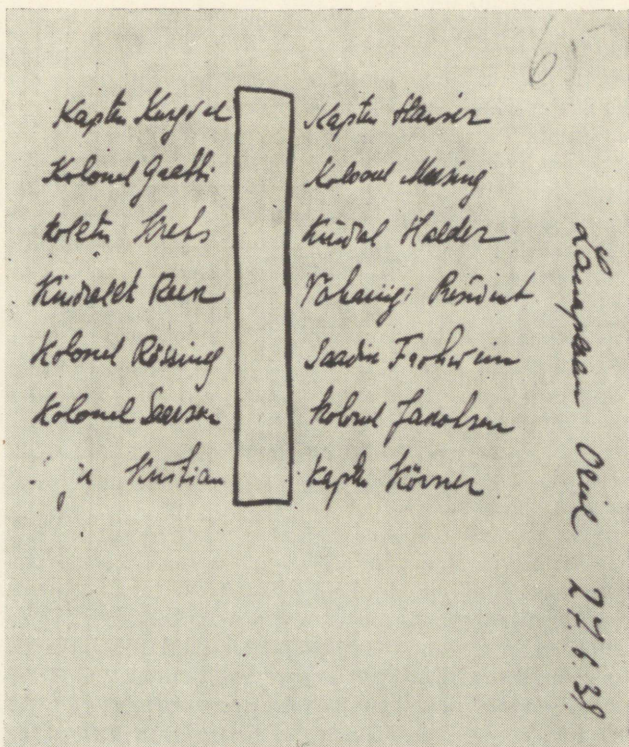 6
Kapten Kurgvel
Kolonel Grabbi
Kolltn Krebs
Kindralltn Reek
Kolonel Rössing
Kolonel Saarsen
Kristian
Kapten Hauser
Kolonel Meesing
Kindral Halder
Vabariigi President
Saadik Frohwein
Kolonel Jakobsen
Kapten Körner
27.6.39.